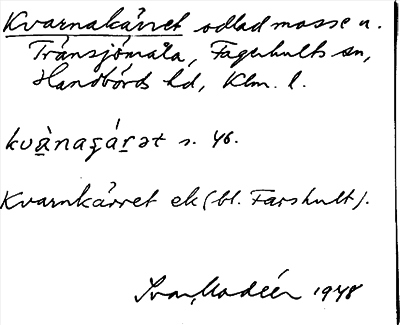 Kvarnakärret odlad mosse u.
Trånsjömåla, Fagerhults sn,
Handbörds hd, Klm. l.
kvànagárət s. 46.
Kvarnkärret ek (bl. Farshult).
Ivar Modéer 1948